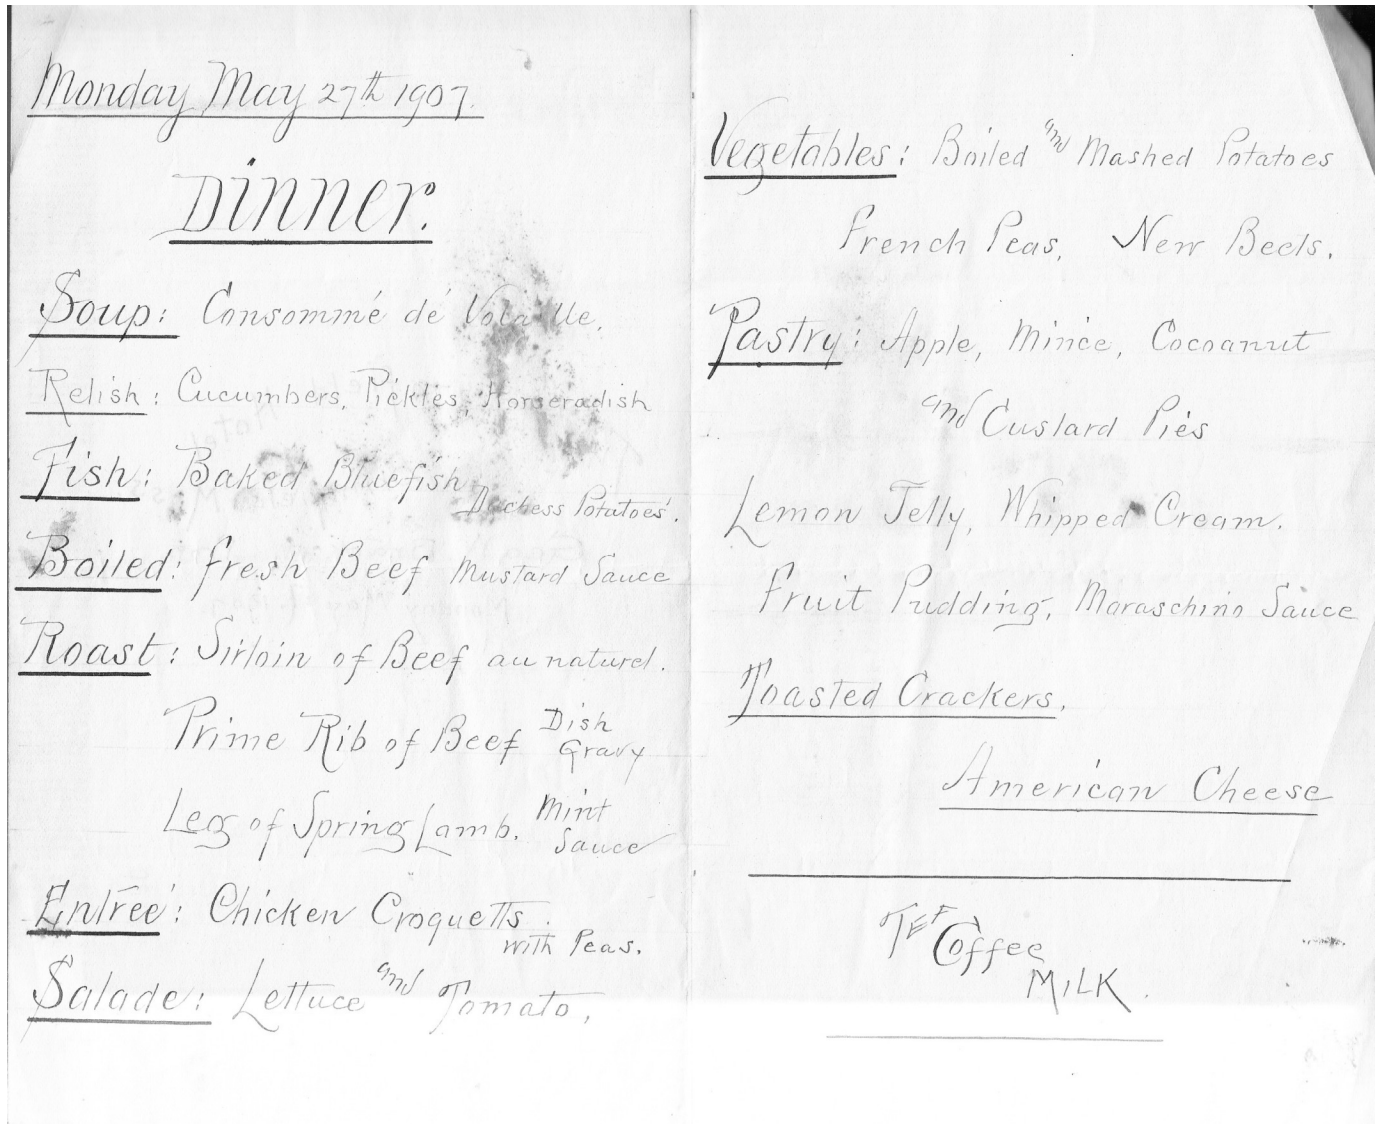 Monday May 27th 1907.
Dinner.
Soup: Consommé dé Volaille.
Relish: Cucumbers, Pickles, Horseradish
Fish: Baked Bluefish
Duchess Potatoes.
Boiled: fresh Beef Mustard Sauce
Roast: Sirloin of Beef au naturel.
Prime Rib of Beef Dish
Gravy
Leg of Spring Lamb. Mint
Sauce
Entreé: Chicken Croquetts
with Peas.
Salade: Lettuce and Tomato,
Vegetables: Boiled and Mashed Potatoes
French Peas, New Beets.
Pastry: Apple, Mince, Cocoanut
and Custard Pies
Lemon Jelly, Whipped Cream.
Fruit Pudding, Maraschino Sauce
Toasted Crackers.
American Cheese
Coffee
MILK.